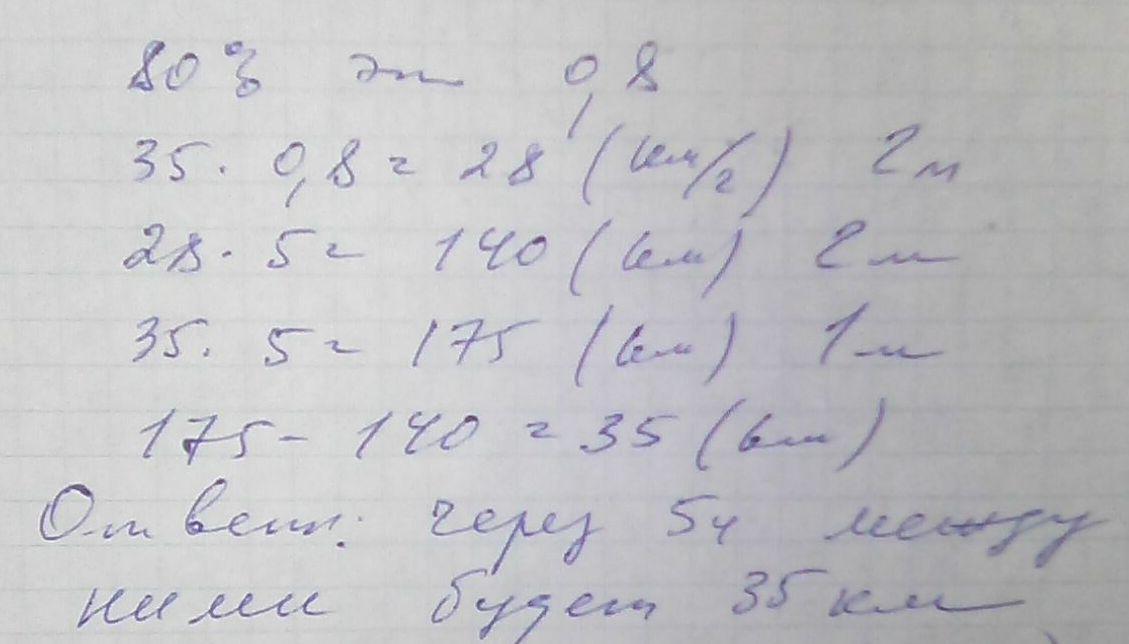 80% это 0,8
35 · 0,8 = 28 (км/ч) 2м
28 · 5 = 140 (км) 2м
35 · 5 = 175 (км) 1м
175 - 140 = 35 (км)
Ответ: через 5ч между
ними будет 35 км